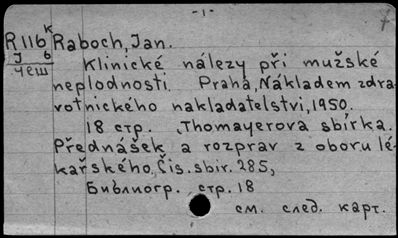 -1-
R116 к Raboch, Jan.
J 6
чеш
Klinické nálezy při mužské
neplodnosti. Praha, Nákladem zdra-
votnického nakladatelství, 1950.
18 стр. Thomayerova sbírka.
Přednášek a rozprav z oboru lé-
kařského, Čis. sbir. 285,
Библиогр. стр. 18
см. след. карт.